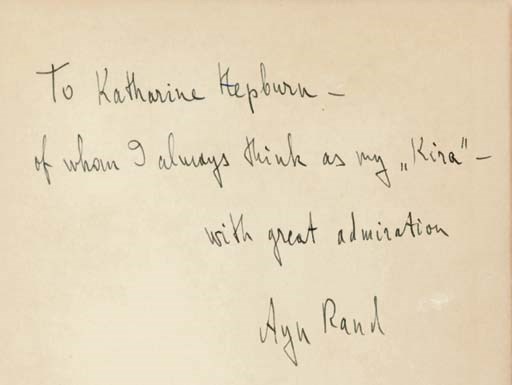 To Katharine Hepburn –
of whom I always think as my „Kira" –
with great admiration
Ayn Rand